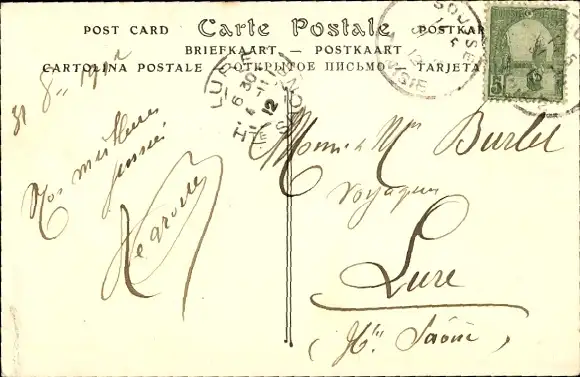 POST CARD Carte Postale POSTKARTE
BRIEFKAART. — POSTKAART
CARTOLINA POSTALE — ОТКРЫТОЕ ПИСЬМО — TARJETA
SOUSSE
5
LURE
6 30
12
31 8 1912
Nos meilleures
pensées
Monsr & Mme Burlet
Voyageur
Lure
(Hte Saône)